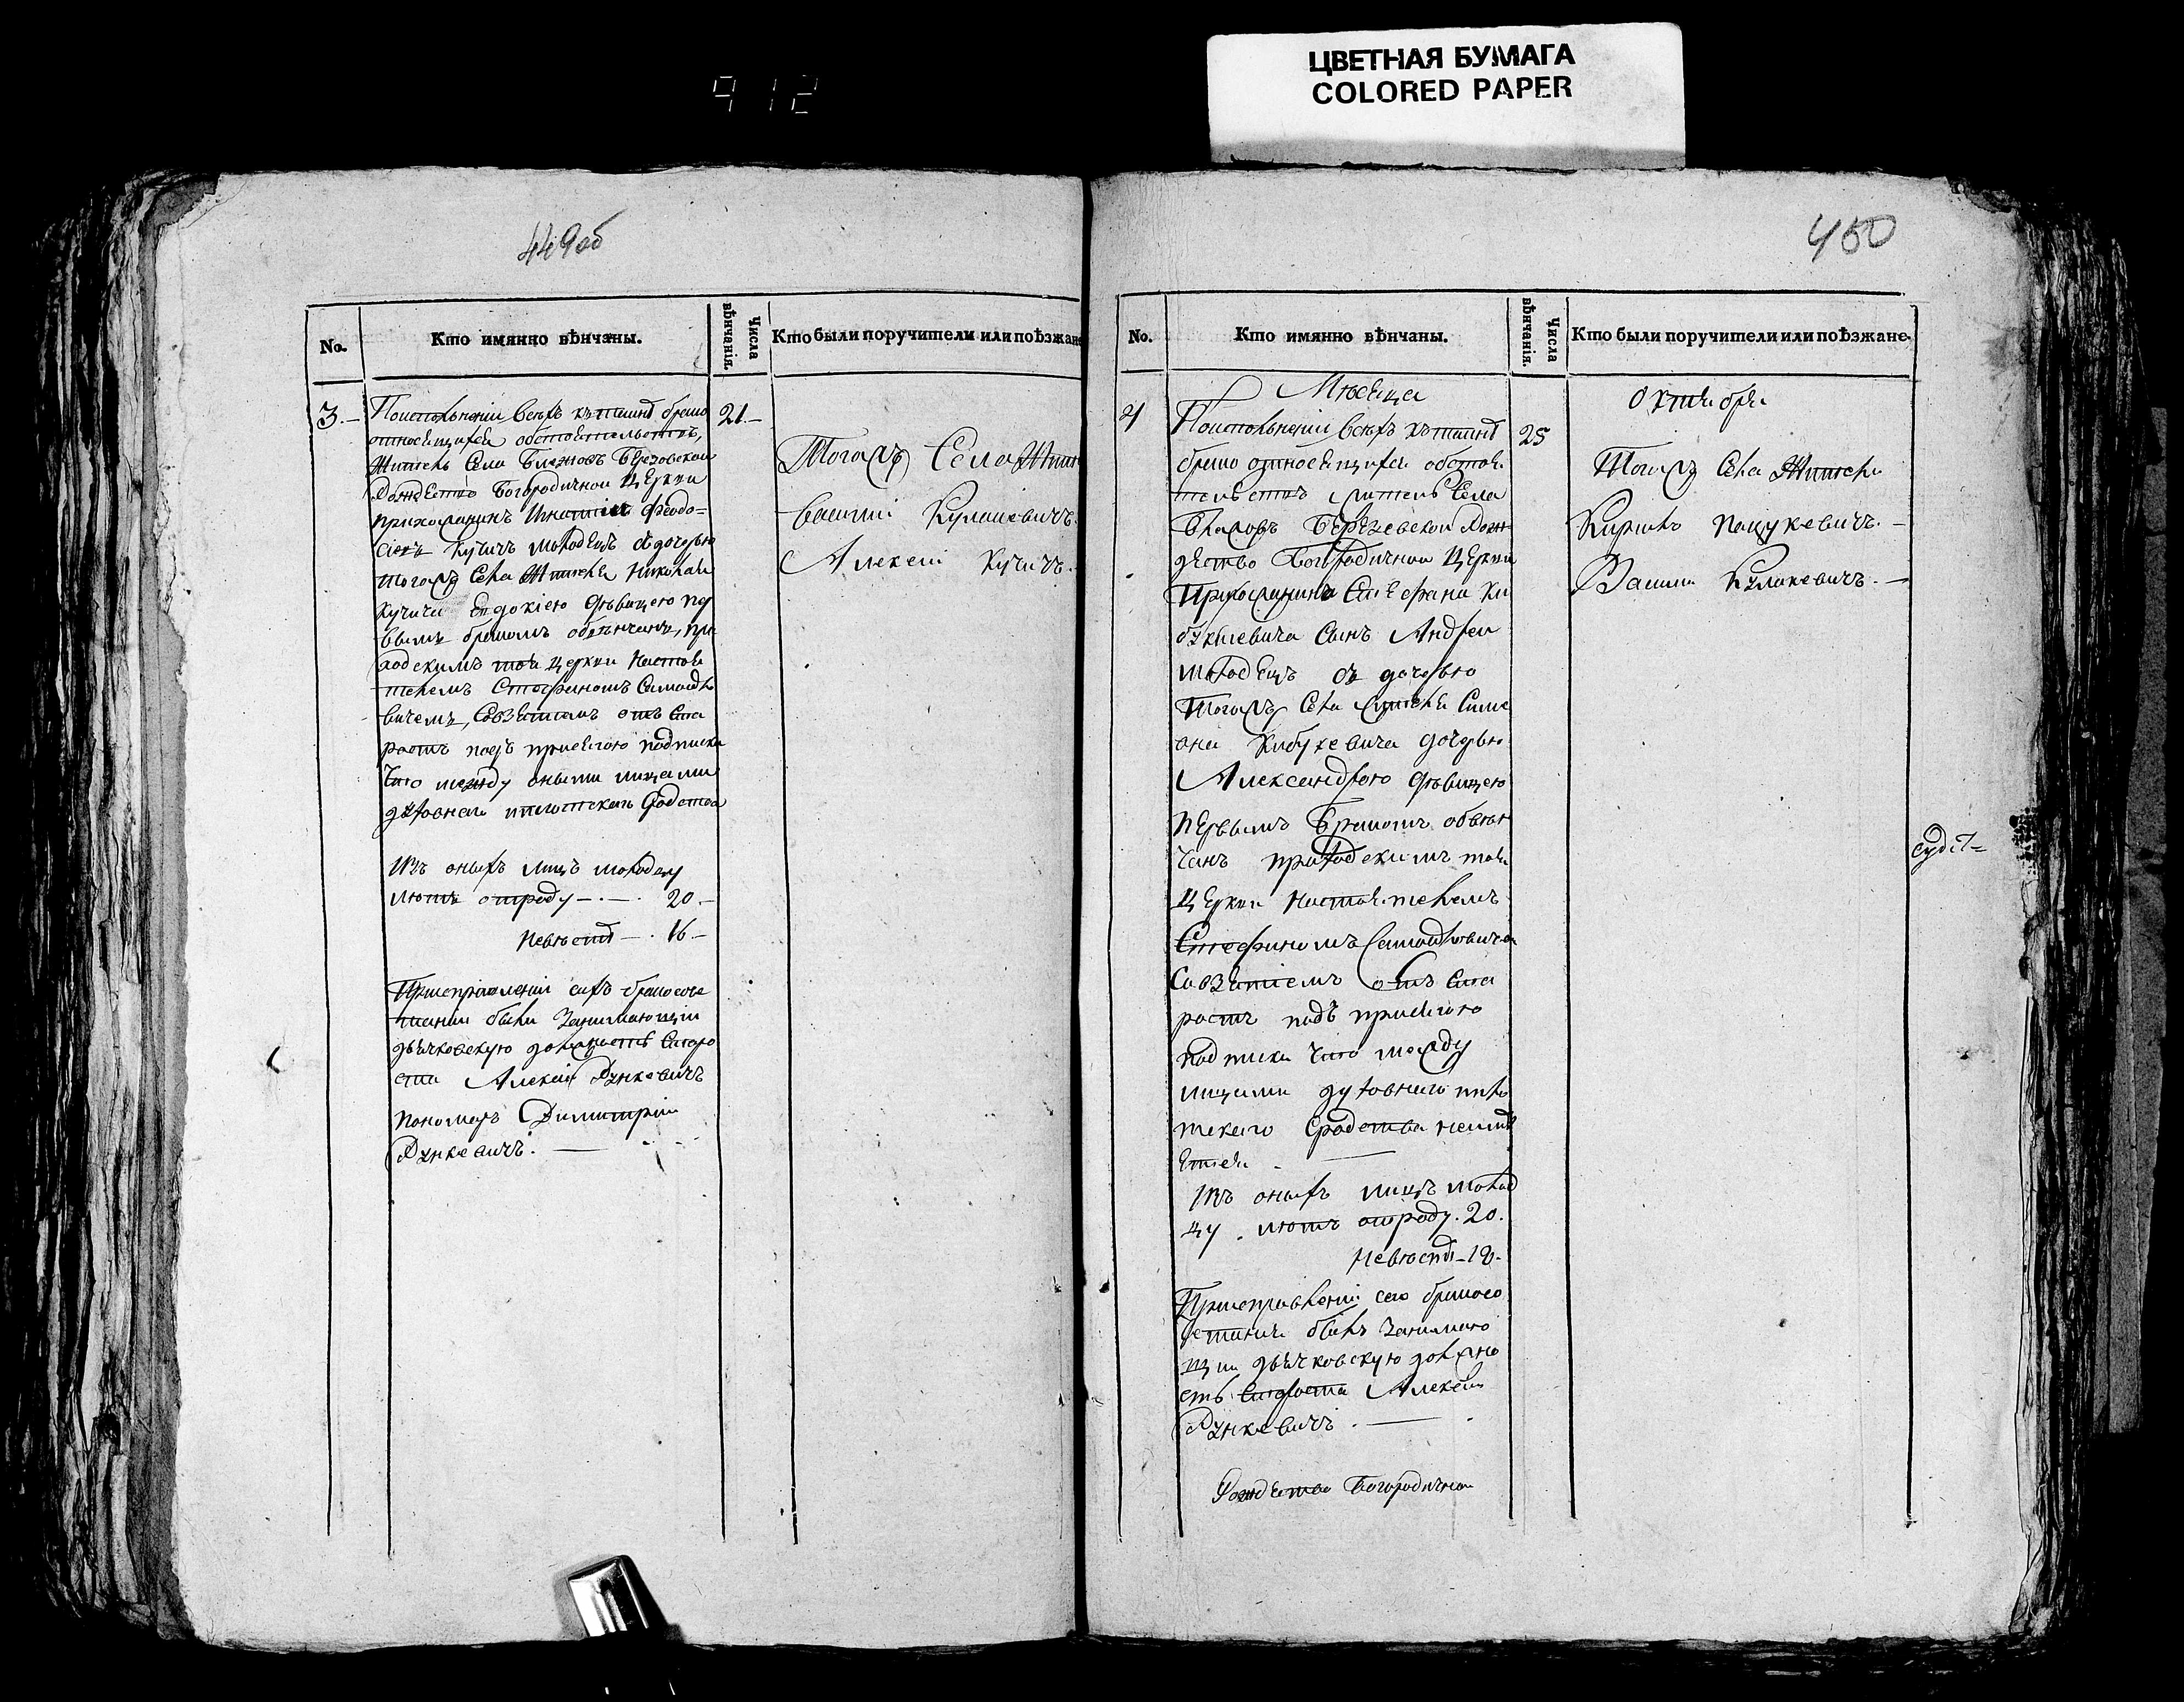 912
ЦВЕТНАЯ БУМАГА
COLORED PAPER
449об
No.
Кто имянно вѣнчаны.
Числа вѣнчанія.
Кто были поручители или поѣзжане
3.—
21.—
По исполненіи всѣхъ къ таинѣ брако
относящихся обстоятельствъ,
житель села
Рождество Богородичной церкви
прихожанинъ Игнатій Феодо=
сіевъ Кучичъ молодецъ съ дочерью
тогожъ села жителя Николая
Кучича Евдокіею дѣвицею пер
вымъ бракомъ обвѣнчанъ, при
ходскимъ тоя церкви настоя
телемъ Стефаномъ
вичемъ, со взятіемъ отъ ста
ростъ подъ присягою подписки
что между оными лицами
духовнаго и плотскаго сродства
Изъ оныхъ лицъ молодцу
лѣтъ отроду —.—. 20.—
невѣстѣ —. 16 —
При справленіи сихъ бракосоче
танія были занимающій
дьячковскую должность старо
ста Алексій Рункевичъ
пономарь Димитрій
Рункевичъ. —
Тогожъ Села Жит
Василій Кулакевичъ.
Алексій Кучичъ.
450
No.
Кто имянно вѣнчаны.
Числа вѣнчанія.
Кто были поручители или поѣзжане.
Мѣсяца
Октября
4
25
По исполненіи всѣхъ къ таинѣ
брако относящихся обстоя
тельствъ житель села
Березовской Рож
дество Богородичной церкви
Прихожанина Стефана
сынъ Андрей
молодецъ съ дочерью
тогожъ села жителя Симе
она дочерью
Александрою дѣвицею
первымъ бракомъ обвѣн
чанъ приходскимъ тоя
церкви настоятелемъ
Стефаномъ
со взятіемъ отъ ста
ростъ подъ присягою
подписки что между
лицами духовнаго и пло
тскаго сродства неимѣ
ется. —
Изъ оныхъ лицъ молод
цу. лѣтъ отроду. 20.
невѣстѣ —
При справленіи сего бракосо
четанія былъ занимаю
щій дьячковскую должно
сть староста Алексій
Рункевичъ. —
Рождество Богородичной
Тогожъ села жители
Кирилъ —
Василій Кулакевичъ. —